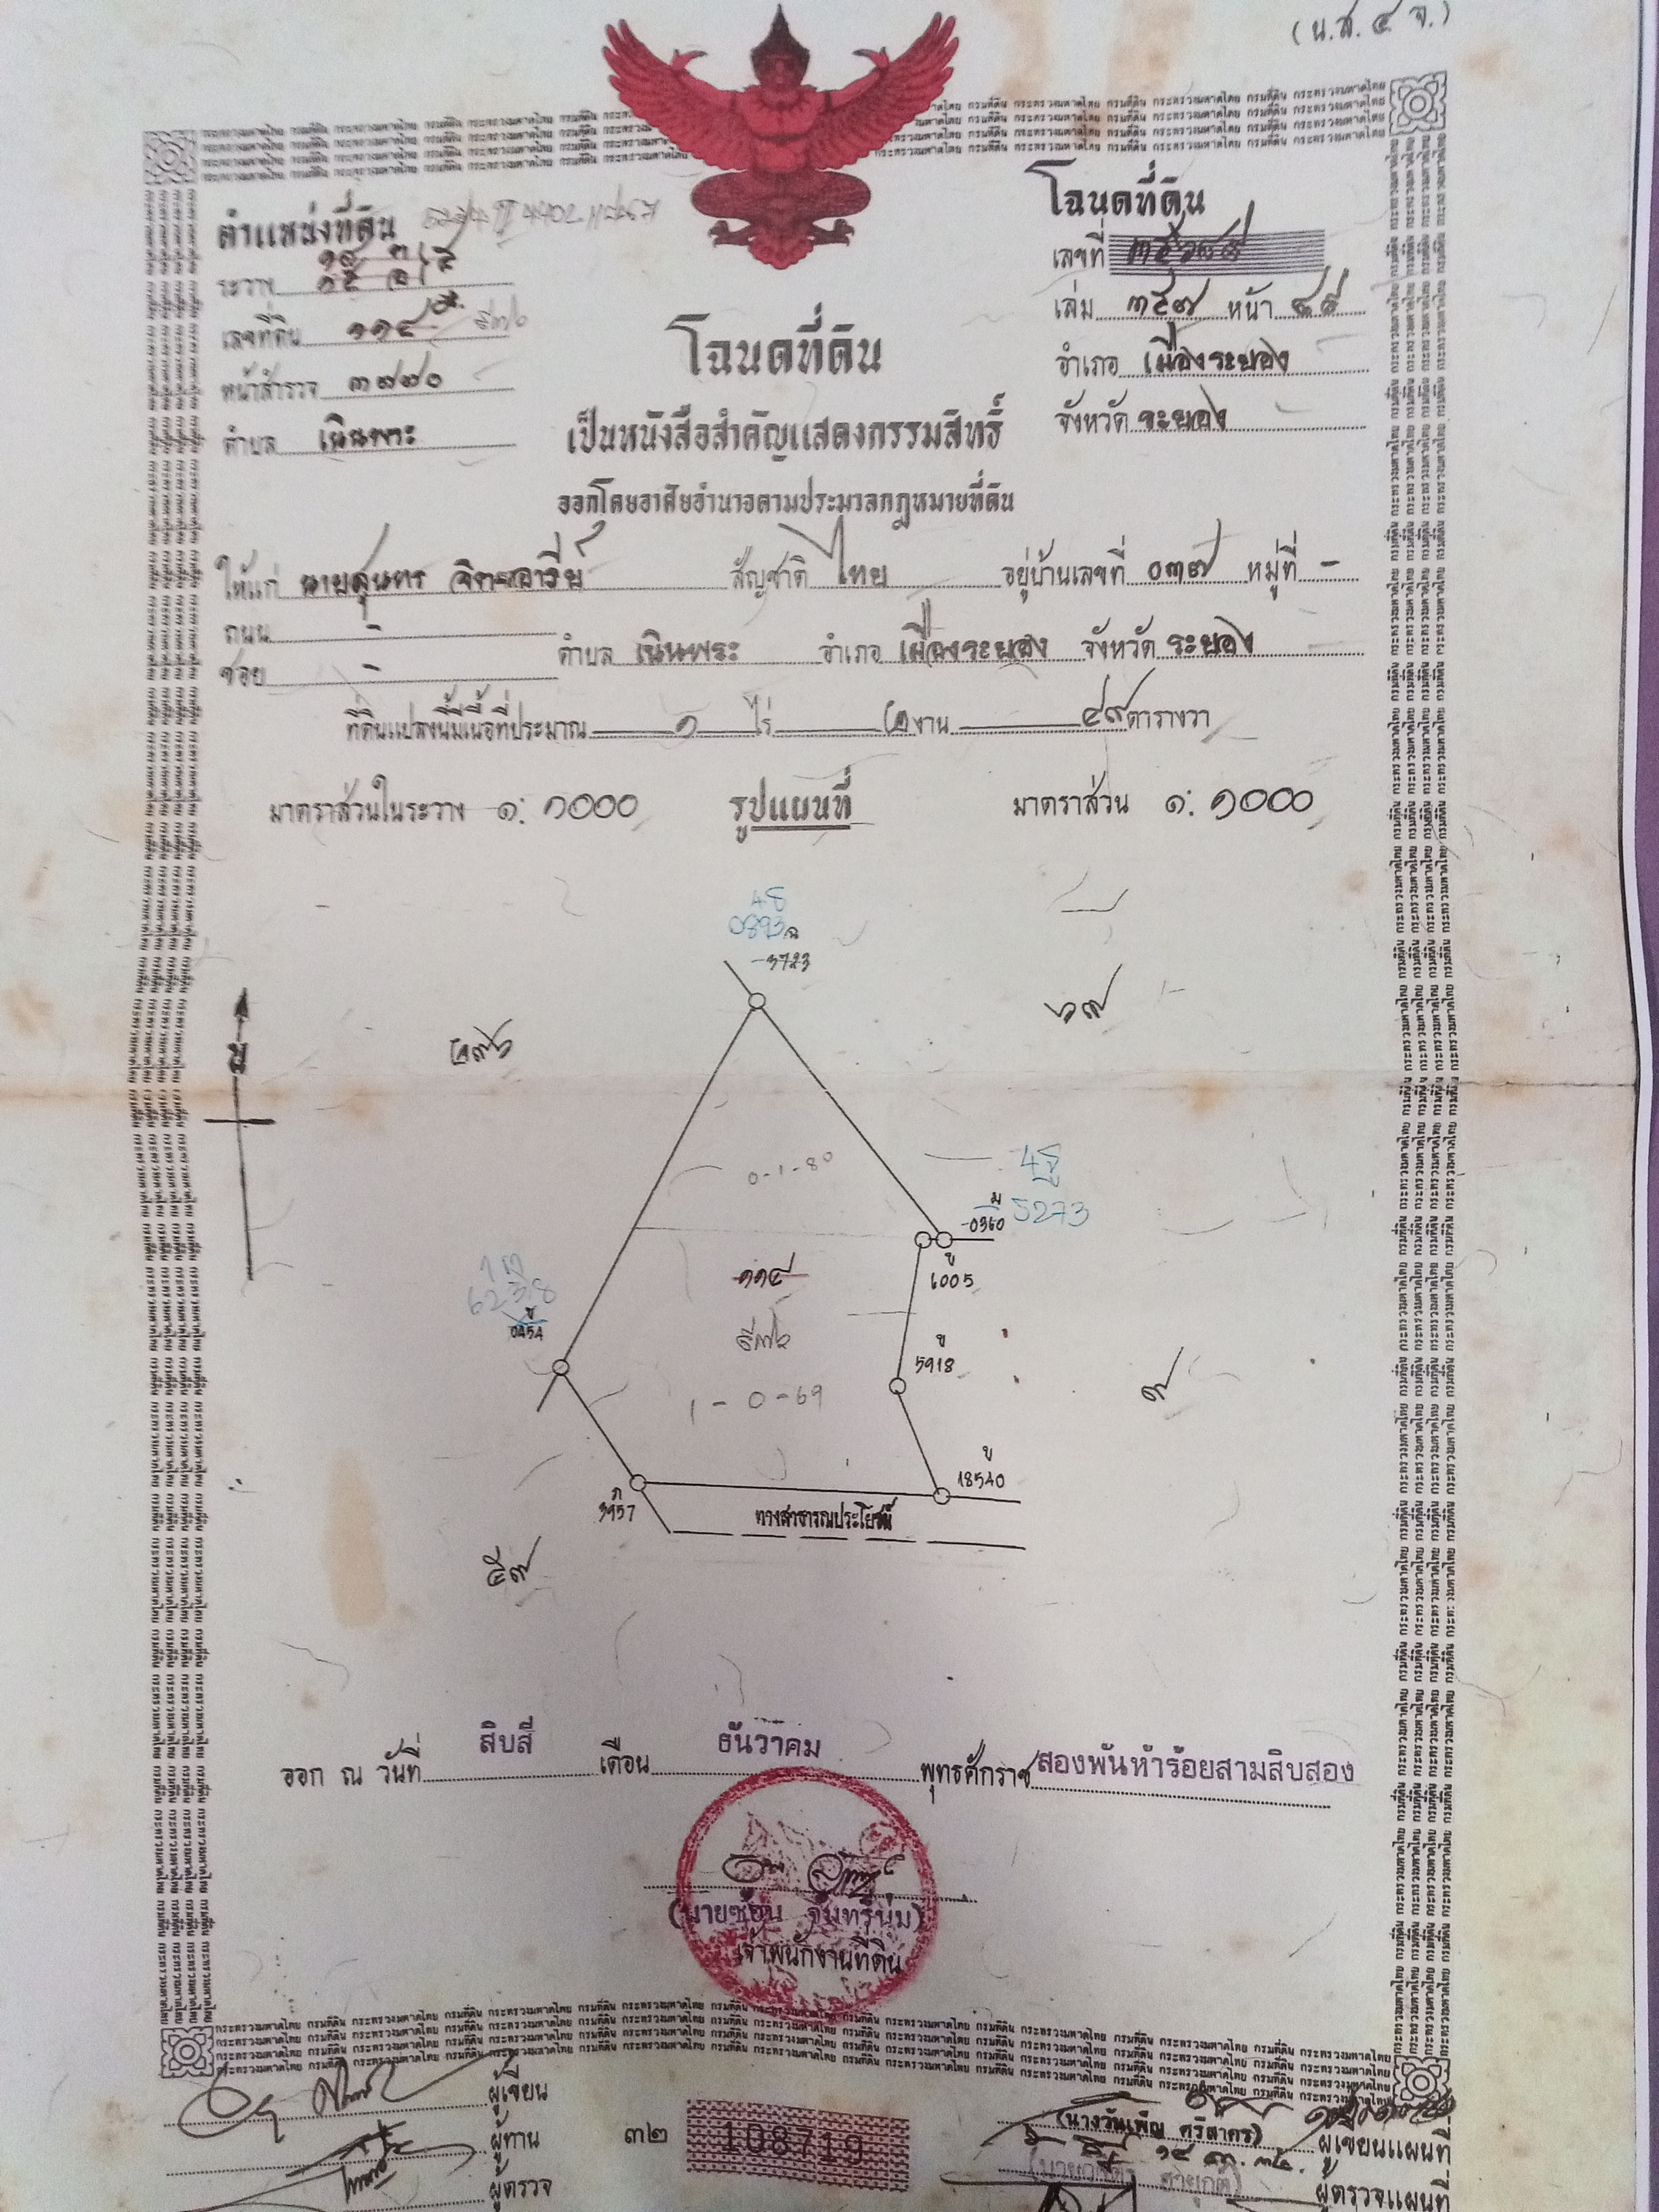 (น.ส. ๔ จ.)
ตำแหน่งที่ดิน
ระวาง
เลขที่ดิน ๑๑๔
หน้าสำรวจ ๓๗๗๐
ตำบล เนินพระ
โฉนดที่ดิน
เลขที่
เล่ม ๓๕๗ หน้า ๔๙
อำเภอ เมืองระยอง
จังหวัด ระยอง
โฉนดที่ดิน
เป็นหนังสือสำคัญแสดงกรรมสิทธิ์
ออกโดยอาศัยอำนาจตามประมวลกฎหมายที่ดิน
ให้แก่ นายสุนทร จิตรอารีย์ สัญชาติ ไทย อยู่บ้านเลขที่ ๐๓๗ หมู่ที่ -
ถนน -
ซอย - ตำบล เนินพระ อำเภอ เมืองระยอง จังหวัด ระยอง
ที่ดินแปลงนี้มีเนื้อที่ประมาณ ๑ ไร่ ๒ งาน ๔๙ ตารางวา
มาตราส่วนในระวาง ๑: ๑๐๐๐ รูปแผนที่ มาตราส่วน ๑: ๑๐๐๐
3723
๖๗
๒๗๖
น
0-1-80
5273
0360
ข
6005
๑๑๔
0454
ข
5918
1-0-69
๙
ข
18540
3957
ทางสาธารณประโยชน์
๕๗
ออก ณ วันที่ สิบสี่ เดือน ธันวาคม พุทธศักราช สองพันห้าร้อยสามสิบสอง
(นายซ้อน จันทร์นุ่ม)
เจ้าพนักงานที่ดิน
ผู้เขียน
ผู้ทาน
ผู้ตรวจ
๓๒
108719
(นางวันเพ็ญ ศรีสาคร)
ผู้เขียนแผนที่
ผู้ตรวจแผนที่